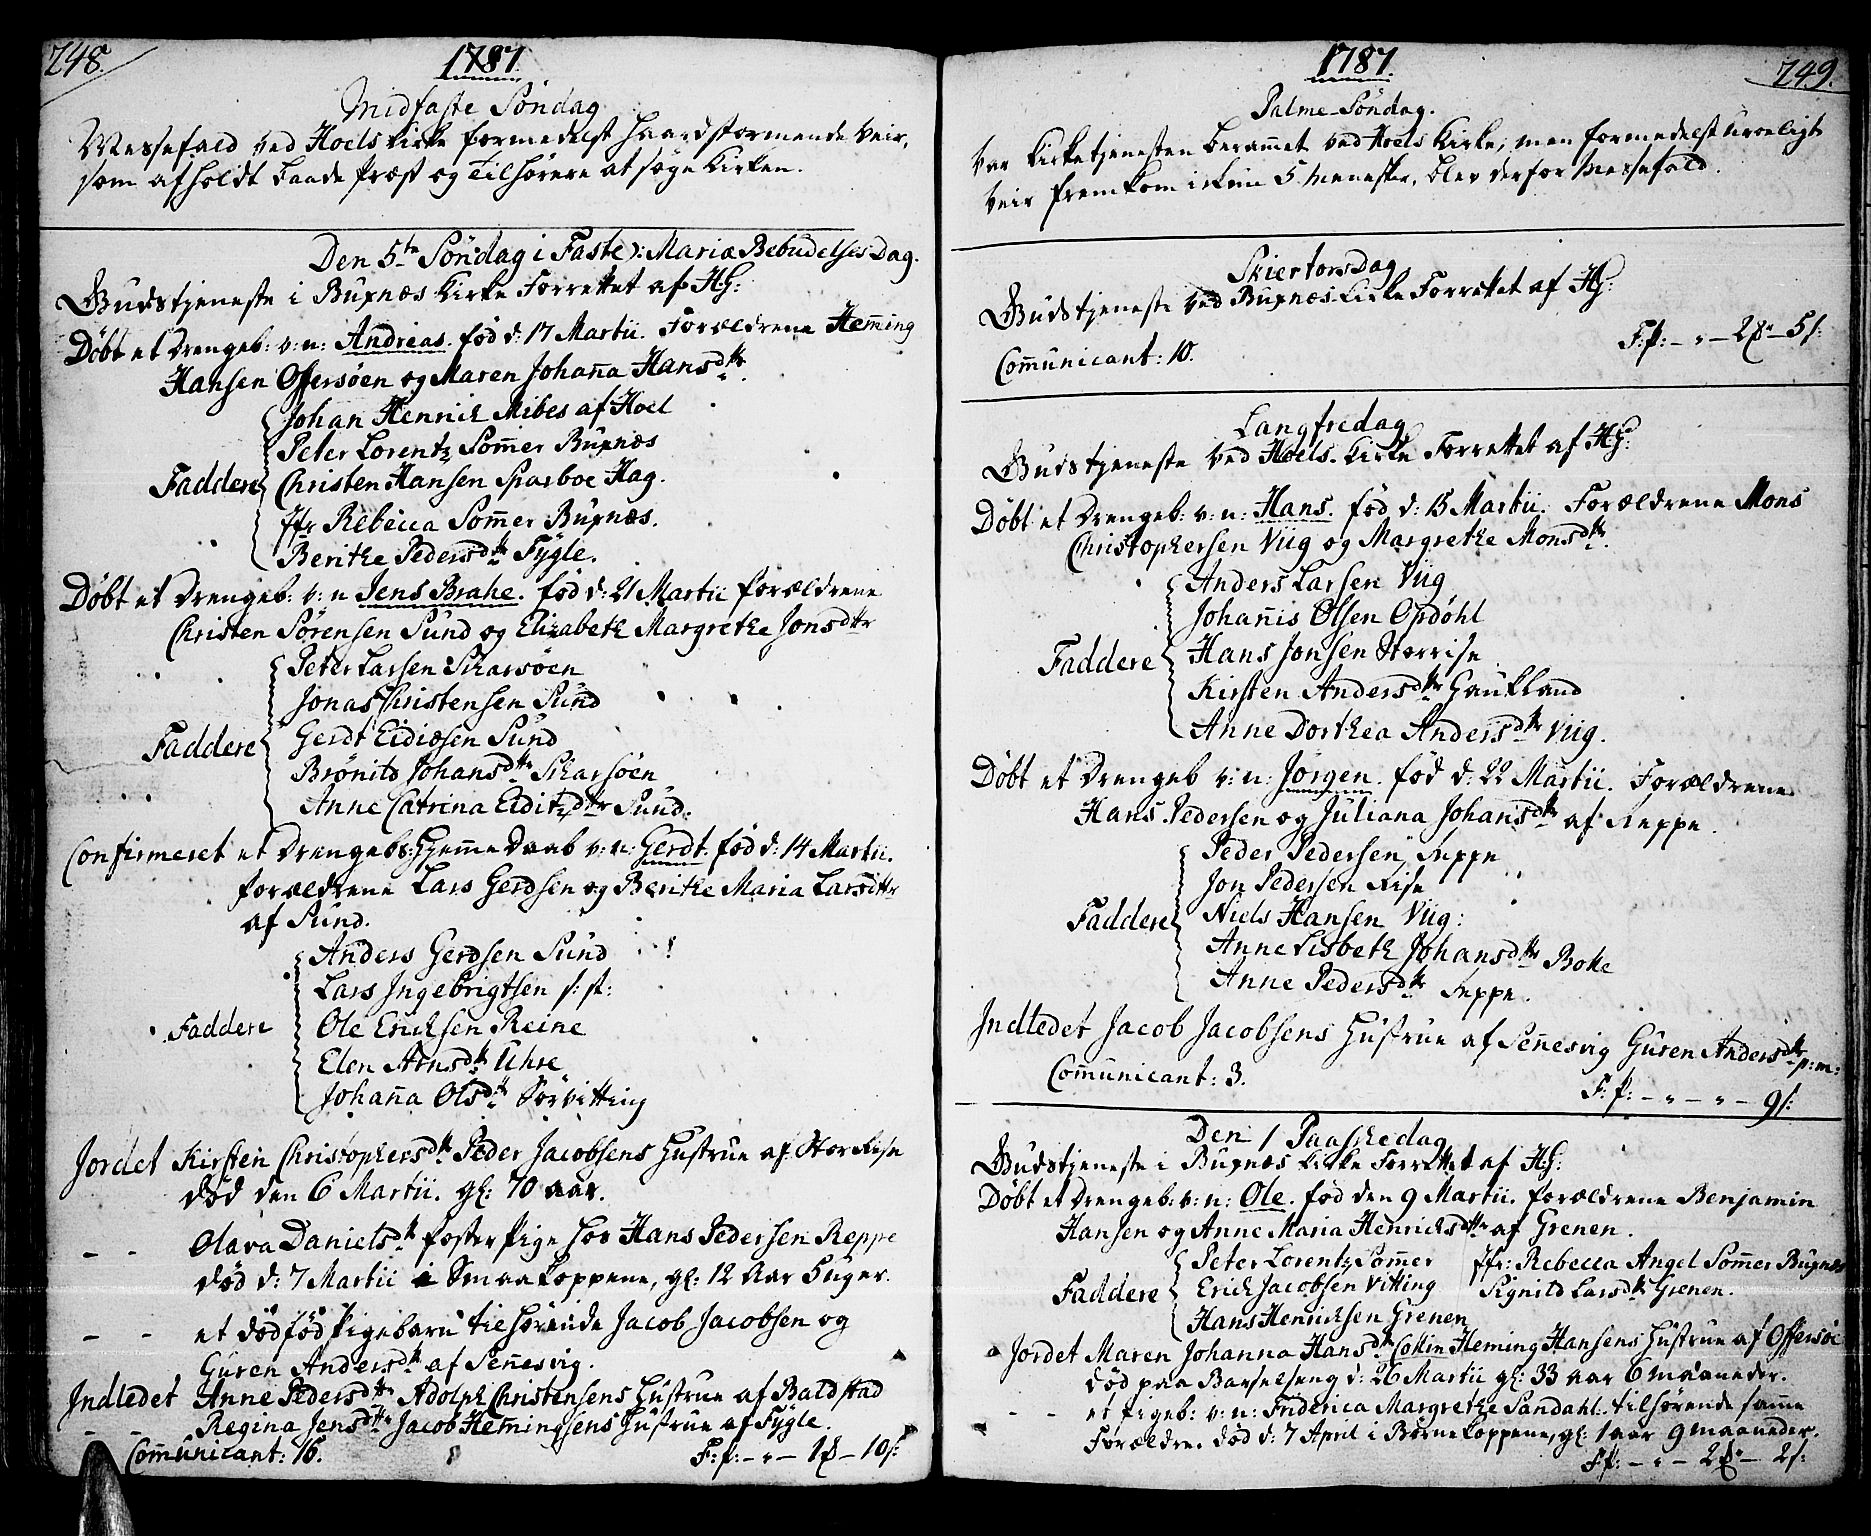 248.
1787
Midfaste Söndag
Messefald ved Hoels Kirke formedelst haardstormende Veir,
som afholdt baade Præst og Tilhörere at söge Kirken.
Den 5te Söndag i Faste ɔ: Mariæ Bebudelses Dag.
Gudstjeneste i Buxnæs Kirke Forrettet af HG:
Döbt et Drengeb: v: n: Andreas. föd d: 17 Martii. Forældrene Hem̅ing
Hansen Offersöen og Maren Johan̅a Hansdtr.
Johan Hennich Mibes af Hoel
Peter Lorentz Som̅er Buxnæs
Faddere Christen Hansen Sparboe Hag.
Jfr Rebecca Som̅er Buxnæs.
Berithe Pedersdtr Fygle.
Döbt et Drengeb: v: n Jens Brahe. föd d: 21 Martii forældrene
Christen Sörensen Sund og Elizabeth Margrethe Jonsdtr
Peter Larsen Skarsöen
Jonas Christensen Sund
Faddere Gerdt Eidiesen Sund
Brönild Johansdtr Skarsöen
Anne Catrina Eiditzdtr Sund.
Confirmeret et Drengebs: Hjemme Daab v: n: Gerdt föd d: 14 Martii.
forældrene Lars Gerdsen og Berithe Maria Larsdtr
af Sund.
Anders Gerdsen Sund
Lars Ingebrigtsen s: st:
Faddere Ole Ericksen Reine
Elen Arnsdtr Uhre
Johan̅a Olsdtr Sörvitting
Jordet Kirsten Christophersdtr Peder Jacobsens Hustrue af Storrise
död den 6 Martii. gl: 70 aar.
- - Olava Danielsdtr foster Pige hos Hans Pedersen Reppe
död d: 7 Martii i Smaakoppene, gl: 12 Aar 3 uger.
- - et dödföd Pigebarn tilhörende Jacob Jacobsen og
Guren Andersdtr af Sen̅esvig.
Indledet Anne Pedersdtr Adolph Christensens Hustrue af Baldstad
- - Regina Jensdtr Jacob Hem̅ingsens Hustrue af Fygle.
Com̅unicant: 16. F: p: - " - 1 - 10 s:
1787
249.
Palme Söndag.
Var Kirketjenesten berammet ved Hoels Kirke, men formedelst uroeligt
Veir fremkom ickun 5 Mennesker, blev derfor Messefald.
Skiertorsdag
Gudstjeneste ved Buxnæs Kirke Forrettet af HG:
Com̅unicant: 10. F: p: - " - 2 - 5 s:
Langfredag
Gudstjeneste ved Hoels Kirke Forrettet af HG:
Döbt et Drengeb: v: n: Hans. föd d: 15 Martii. Forældrene Mons
Christophersen Viig og Margrethe Monsdtr.
Anders Larsen Viig
Johan̅is Olsen Opdöhl
Faddere Hans Jonsen Storrise
Kirsten Andersdtr Haukland
Anne Dorthea Andersdtr Viig.
Döbt et Drengeb v: n: Jörgen. föd d: 22 Martii. Forældrene
Hans Pedersen og Juliana Johansdtr af Reppe.
Peder Pedersen Reppe
Jon Pedersen Rise
Faddere Niels Hansen Viig:
Anne Lisbeth Johansdtr Bolle
Anne Pedersdtr Reppe.
Indledet Jacob Jacobsens Hustrue af Sen̅esvig Guren Andersdtr p: m:
Com̅unicant: 3. F: p: - " - " - 9 s:
Den 1 Paaskedag
Gudstjeneste i Buxnæs Kirke Forrettet af HG:
Döbt et Drengeb: v: n: Ole. föd den 9 Martii. forældrene Benjamin
Hansen og Anne Maria Henricksdtr af Grenen.
Peter Lorentz Som̅er Jfr: Rebecca Angel Som̅er Buxnæs
Faddere Erich Jacobsen Vitting Signild Larsdtr Grenen.
Hans Henricksen Grenen
Jordet Maren Johanna Hansdtr Collin Heming Hansens Hustrue af Offersöe
död paa Barselseng d: 26 Martii gl: 33 aar 6 maaneder.
- - et Pigeb: v: n: Friderica Margrethe Sandahl tilhörende sam̅e
Forældre. död d: 7 April i Börnekoppene, gl: 1 aar 9 maaneder.
F: p: - " - 2 - 2 s: